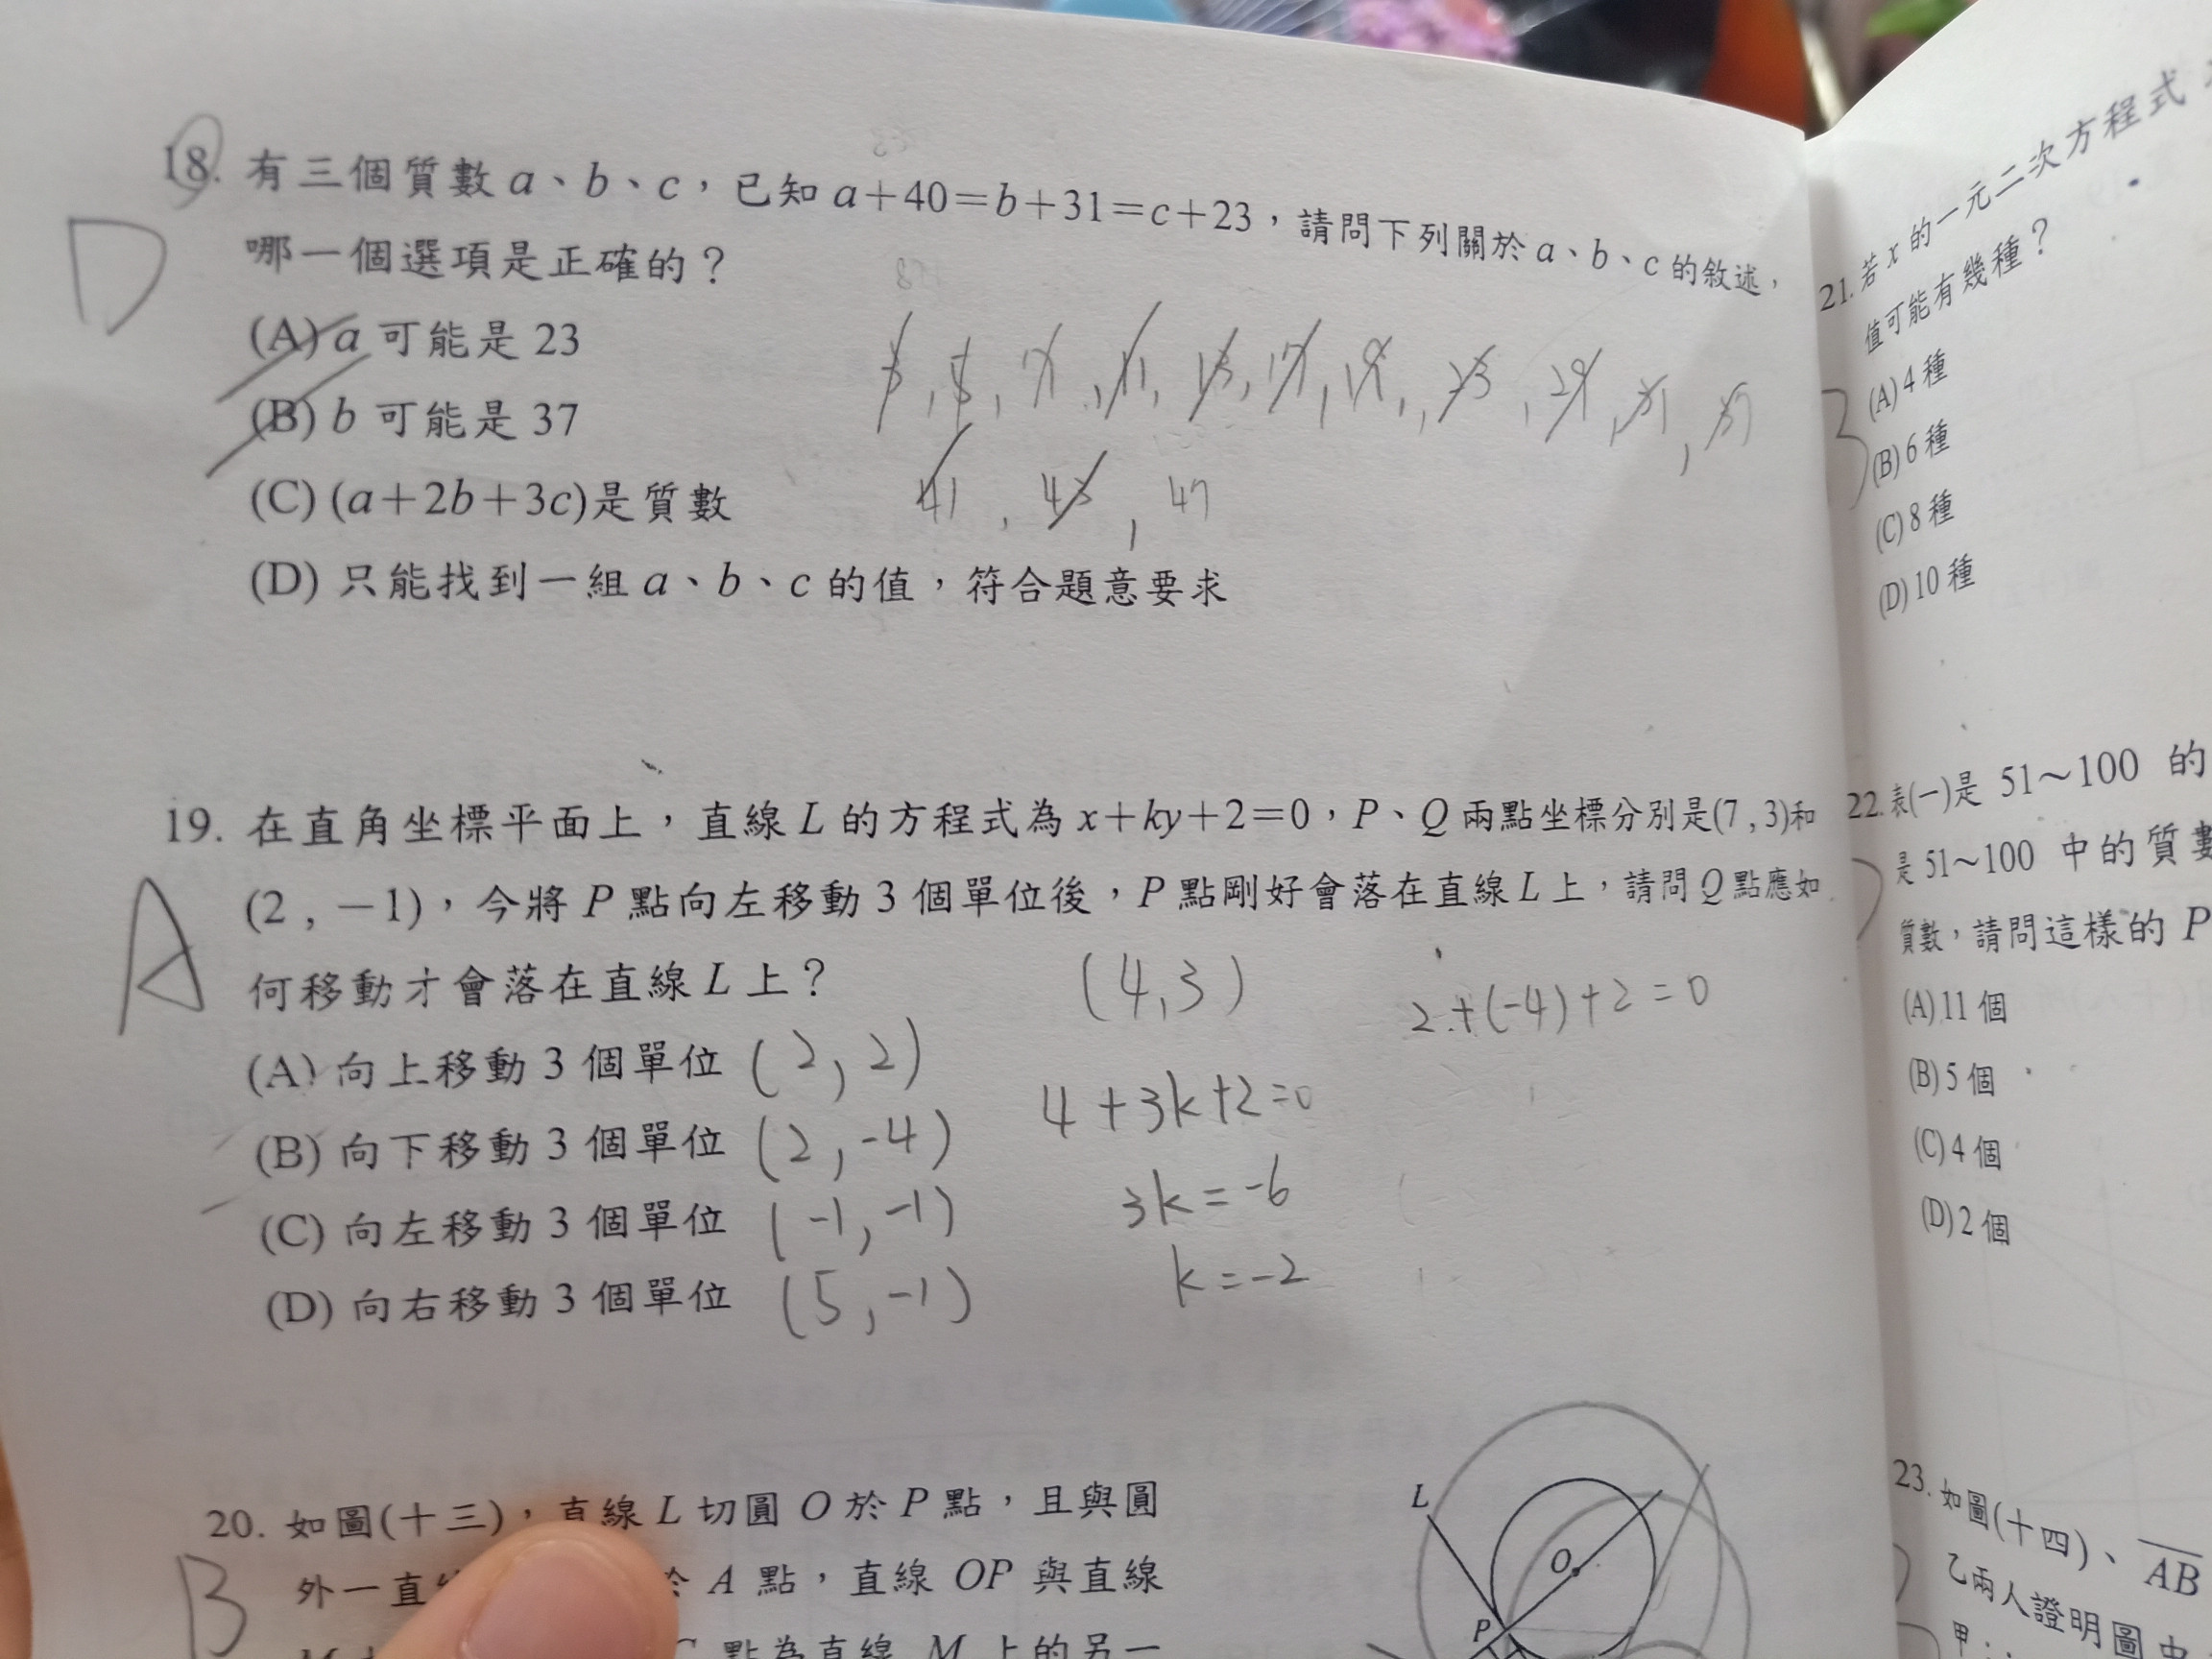 18. 有三個質數 a、b、c，已知 a+40=b+31=c+23，請問下列關於 a、b、c 的敘述，
哪一個選項是正確的？
D
(A) a 可能是 23
(B) b 可能是 37
(C) (a+2b+3c)是質數
(D) 只能找到一組 a、b、c 的值，符合題意要求
3, 5, 7, 11, 13, 17, 19, 23, 29, 31, 37
41, 43, 47
19. 在直角坐標平面上，直線 L 的方程式為 x+ky+2=0，P、Q 兩點坐標分別是(7 , 3)和
(2 , －1)，今將 P 點向左移動 3 個單位後，P 點剛好會落在直線 L 上，請問 Q 點應如
何移動才會落在直線 L 上？
A
(A) 向上移動 3 個單位 (2, 2)
(B) 向下移動 3 個單位 (2, -4)
(C) 向左移動 3 個單位 (-1, -1)
(D) 向右移動 3 個單位 (5, -1)
(4,3)
4+3k+2=0
3k=-6
k=-2
2+(-4)+2=0
20. 如圖(十三)，直線 L 切圓 O 於 P 點，且與圓
外一直 A 點，直線 OP 與直線
點為直線 M 上的另一
B
L
O
P
21. 若 x 的一元二次方程式
值可能有幾種？
(A) 4 種
(B) 6 種
(C) 8 種
(D) 10 種
22. 表(一)是 51～100 的
是 51～100 中的質數
質數，請問這樣的 P
(A) 11 個
(B) 5 個
(C) 4 個
(D) 2 個
23. 如圖(十四)、AB
乙兩人證明圖中
甲：